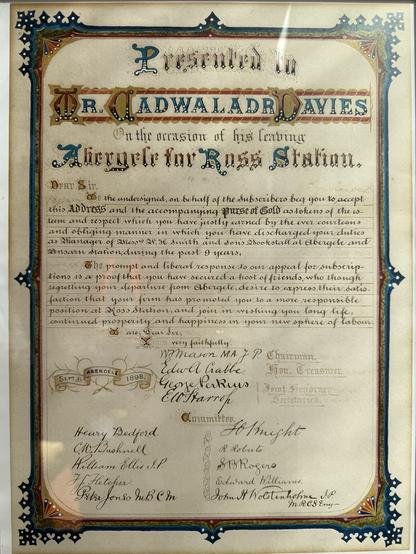 Presented to
Mr. Cadwaladr Davies
On the occasion of his leaving
Abergele for Ross Station.
Dear Sir,
We the undersigned, on behalf of the Subscribers beg you to accept
this Address and the accompanying Purse of Gold as tokens of the es-
teem and respect which you have justly earned by the ever courteous
and obliging manner in which you have discharged your duties
as Manager of Messrs W. H. Smith and Sons Bookstall at Abergele and
Station, during the past 9 years.
The prompt and liberal response to our appeal for subscrip-
tions is a proof that you have secured a host of friends, who though
regretting your departure from Abergele, desire to express their satis-
faction that your firm has promoted you to a more responsible
position at Ross Station, and join in wishing you long life,
continued prosperity and happiness in your new sphere of labour.
We are, Dear Sir,
very faithfully,
W. Mason M.A. J.P. Chairman.
Edwd Crabbe Hon. Treasurer.
George Perkins
E W Harrop
Joint Honorary
Secretaries.
Abergele
Sept. 1898.
Committee.
Henry Bedford
C. W. Bushnell
William Ellis J.P
H Fletcher
Peter Jones M.B. C.M
H Knight
R Roberts
S B Rogers
Edward Williams
John H Wolstenholme J.P.
M.R.C.S Eng